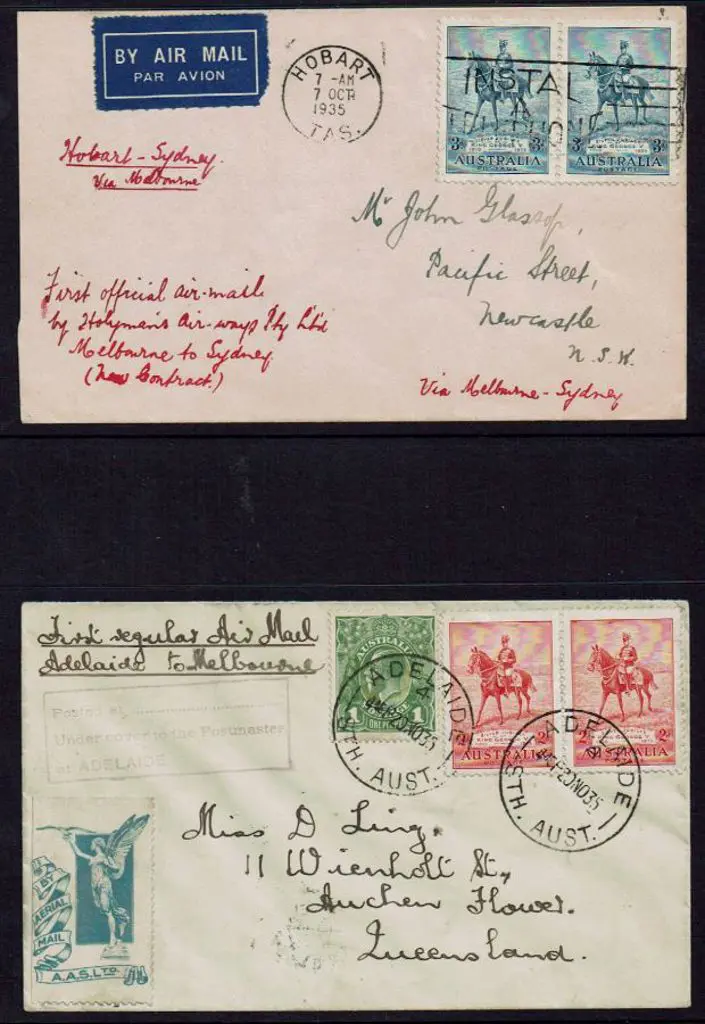 BY AIR MAIL
PAR AVION
HOBART
7 - AM
7 OCT
1935
TAS.
INSTAL
A
3d 3d
AUSTRALIA AUSTRALIA
POSTAGE POSTAGE
Hobart - Sydney.
Via Melbourne
Mr John Glassop,
Pacific Street,
Newcastle
N.S.W.
First official air-mail
by Holyman's Air-ways Pty Ltd
Melbourne to Sydney
(New Contract.)
Via Melbourne - Sydney
First regular Air Mail
Adelaide to Melbourne
Posted at
Under cover to the Postmaster
at ADELAIDE
AUSTRALIA
1 1
ONE PENNY
KING GEORGE V KING GEORGE V
2d 2d
ADELAIDE
STH. AUST.
ADELAIDE
STH. AUST.
Miss D Ling,
11 Wienholt St.,
Auchen Flower.
Queensland.
BY
AERIAL
MAIL
A.A.S. LTD